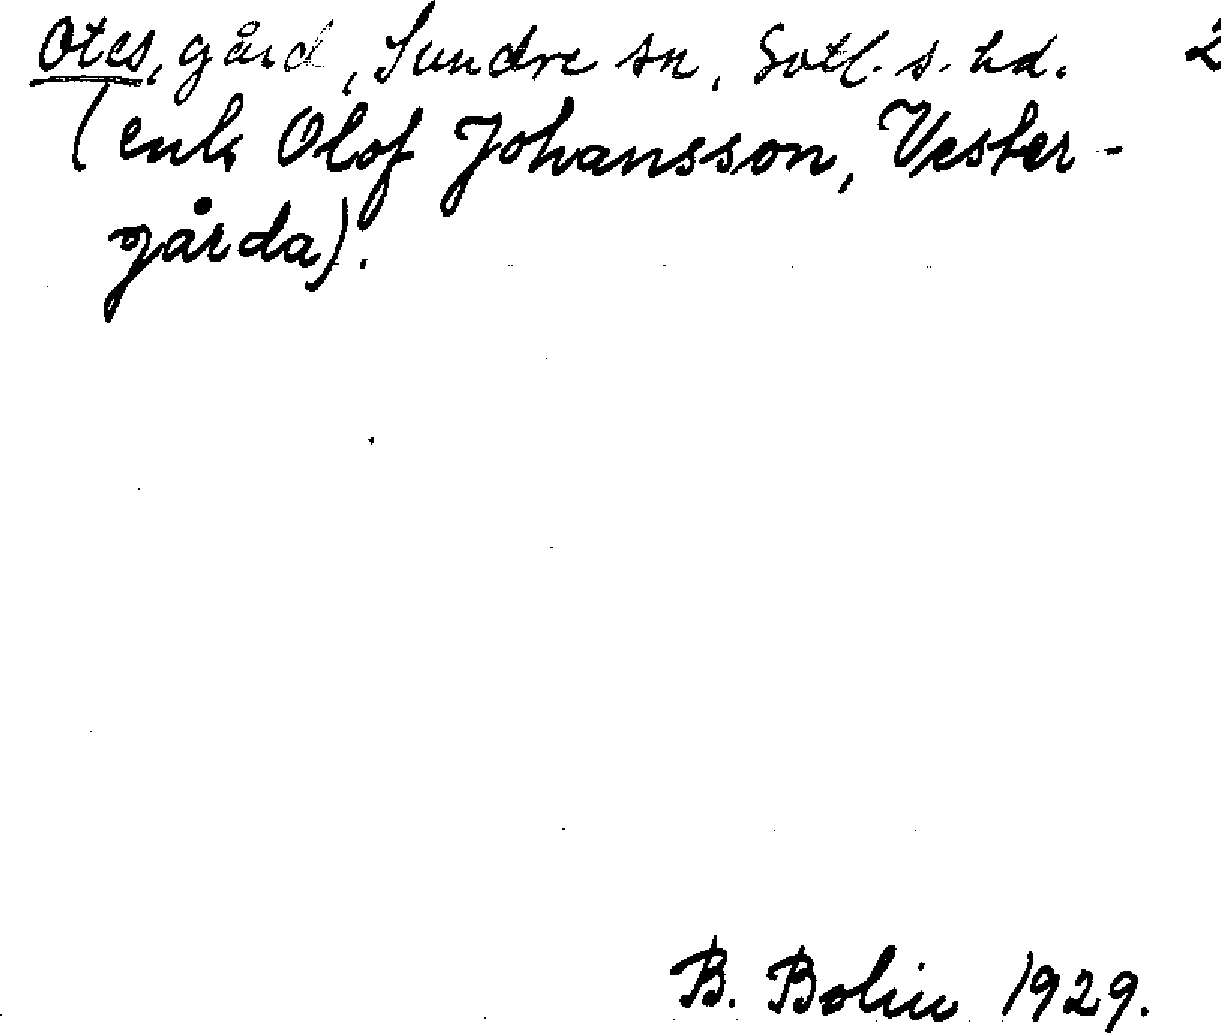 Otes, gård, Sundre sn, Gotl. s. hd. 2
(enl. Olof Johansson, Vester-
gårda).
B. Bolin 1929.